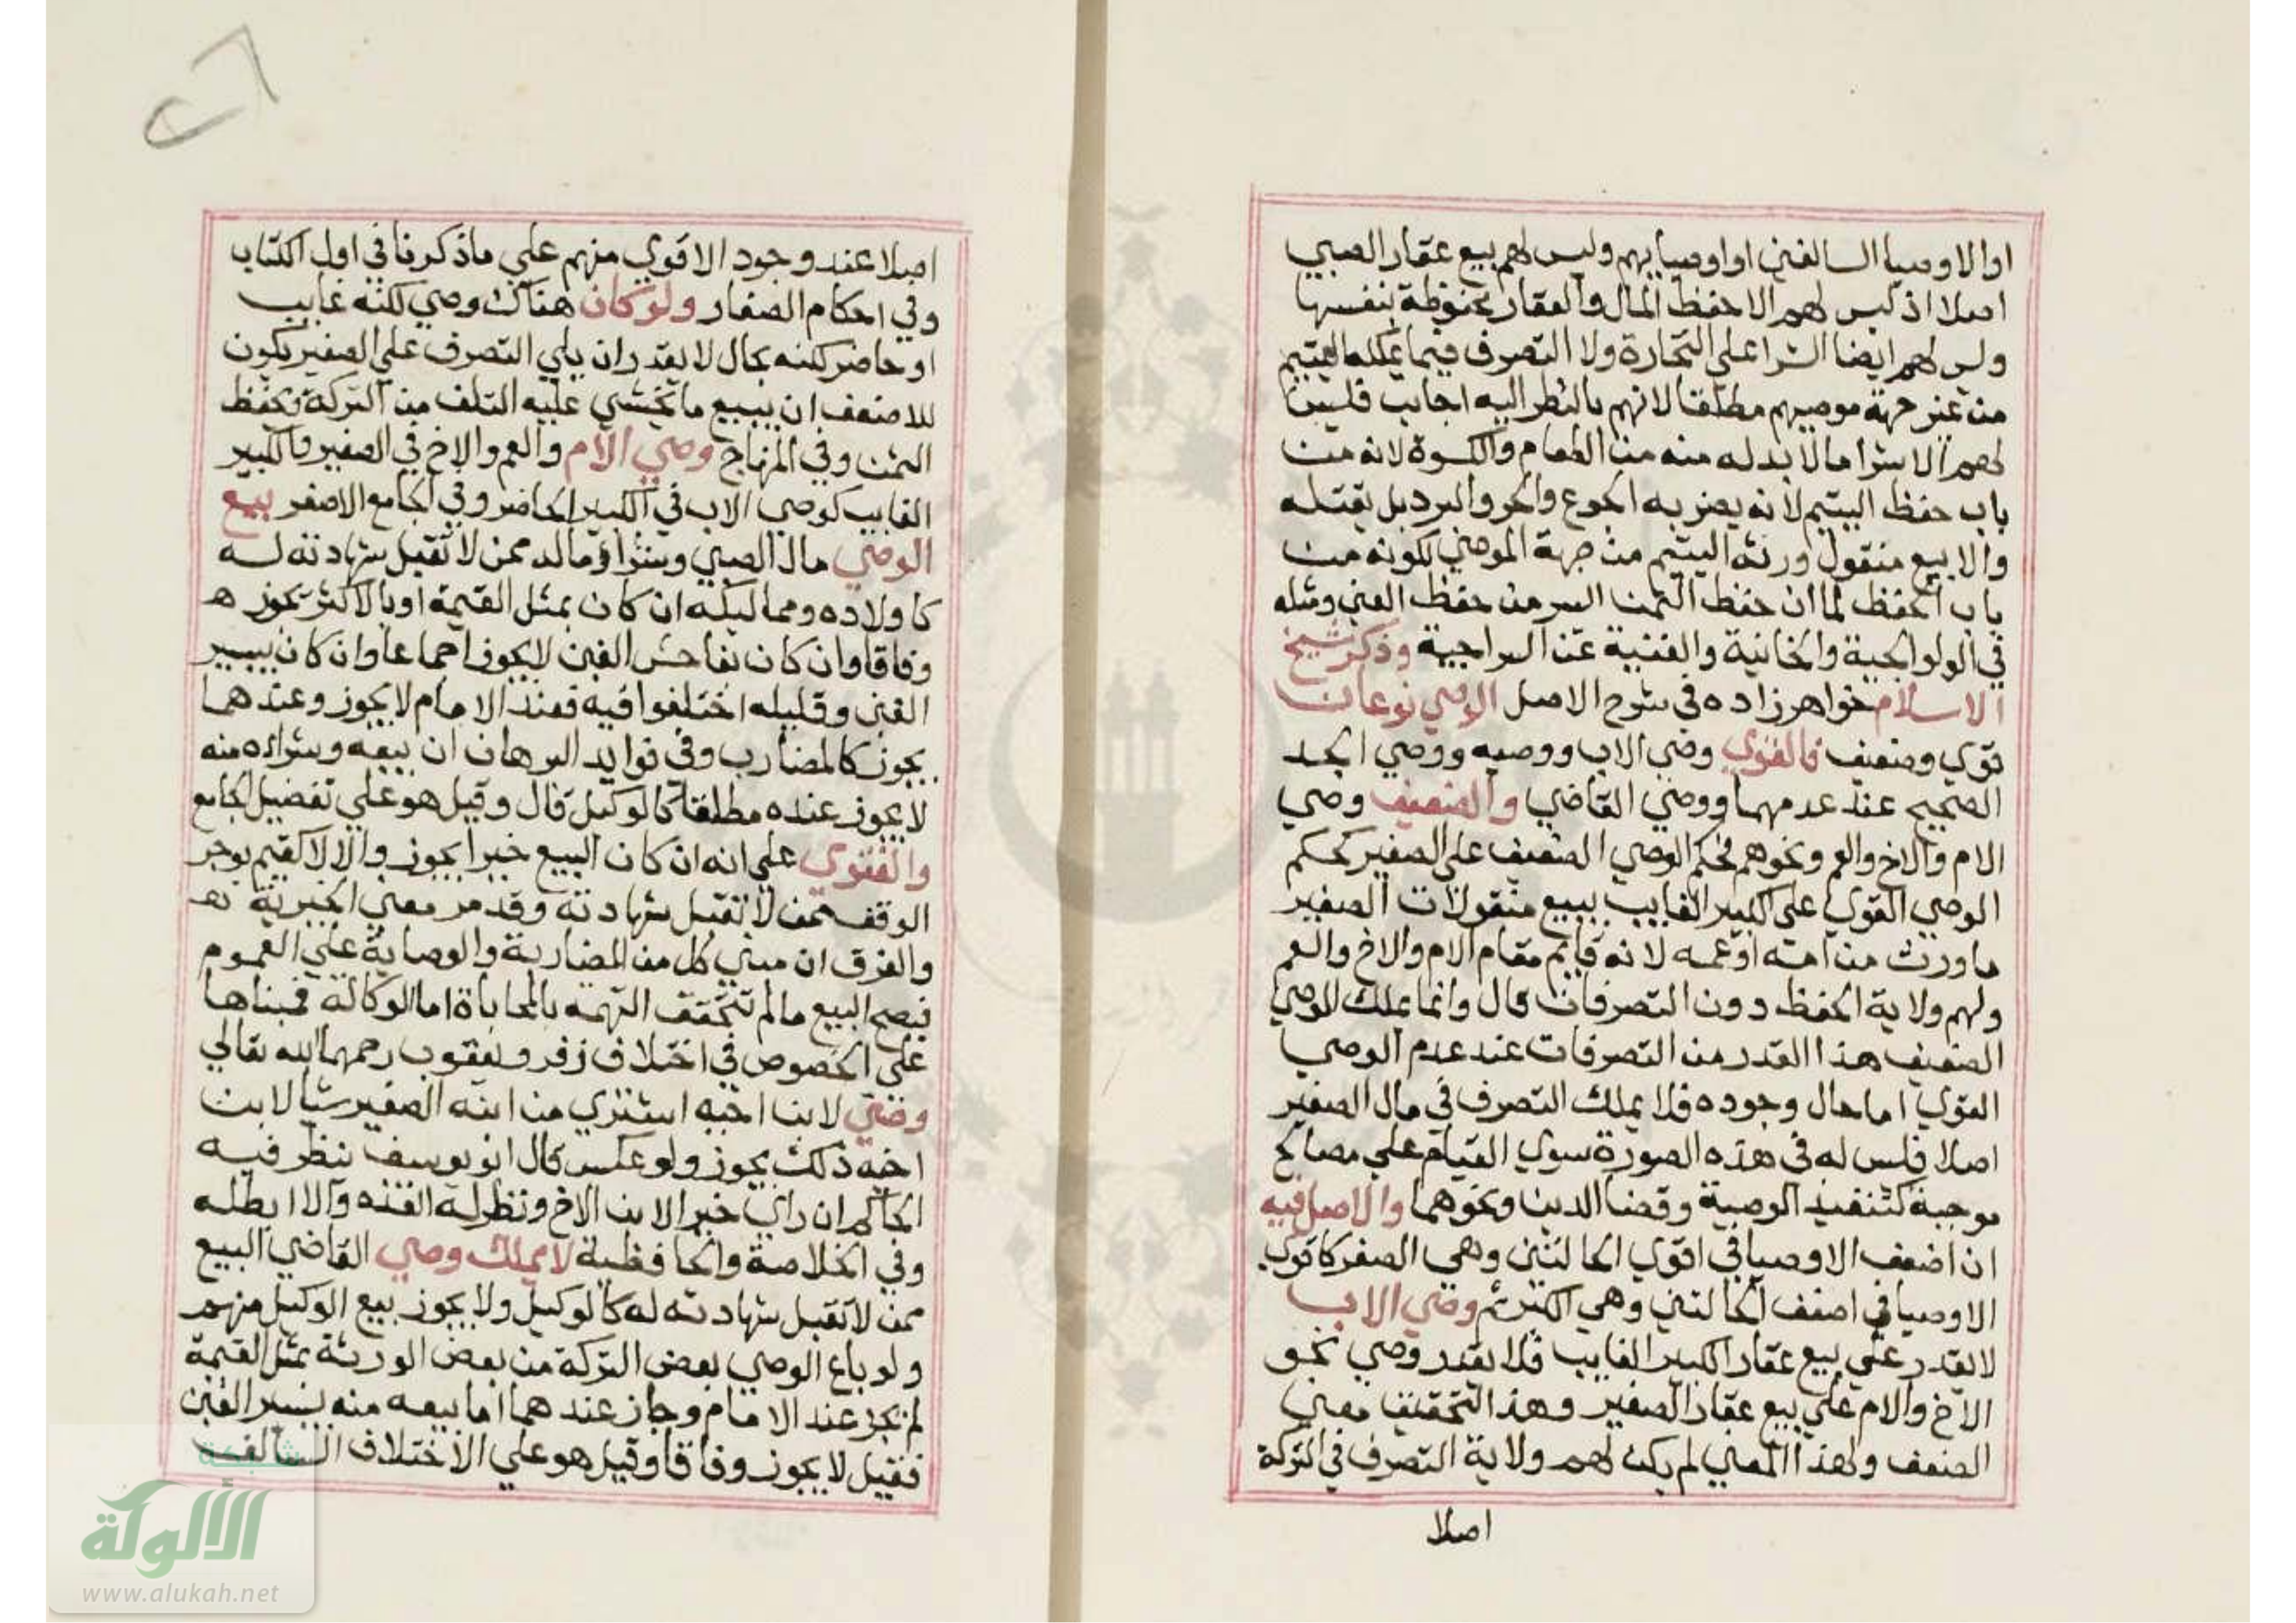 او الاوصيا السالفين او اوصيايهم وليس لهم بيع عقار الصبي
اصلا اذ ليس لهم الا حفظ المال والعقار محفوظة بنفسها
وليس لهم ايضا الشرا علي التجارة ولا التصرف فيما يملكه اليتيم
من غير جهة موصيهم مطلقا لانهم بالنظر اليه اجانب فليس
لهم الا شرا ما لا بد له منه من الطعام والكسوة لانه من
باب حفظ اليتيم لانه يضر به الجوع والحر والبرد بل يقتله
والا بيع منقول ورثه اليتيم من جهة الموصي لكونه من
باب الحفظ لما ان حفظ الثمن ايسر من حفظ العين ومثله
في الولوالجية والخانية والغنية عن السراجية وذكر شيخ
الاسلام خواهر زاده في شرح الاصل الوصي نوعان
قوي وضعيف فالقوي وصي الاب ووصيه ووصي الجد
الصحيح عند عدمهما ووصي القاضي والضعيف وصي
الام والاخ والعم ونحوهم فحكم الوصي الضعيف علي الصغير كحكم
الوصي القوي علي الكبير الغايب يبيع منقولات الصغير
ما ورث من امه او عمه لانه قايم مقام الام والاخ والعم
ولهم ولاية الحفظ دون التصرفات قال وانما يملك الوصي
الضعيف هذا القدر من التصرفات عند عدم الوصي
القوي اما حال وجوده فلا يملك التصرف في مال الصغير
اصلا فليس له في هذه الصورة سوي القيام علي مصالح
موجبة كتنفيذ الوصية وقضا الدين ونحوهما والاصل فيه
ان اضعف الاوصيا في اقوي الحالتين وهي الصغر كاقوي
الاوصيا في اضعف الحالتين وهي الكبر ثم وصي الاب
لا يقدر علي بيع عقار الكبير الغايب فلا يقدر وصي نحو
الاخ والام علي بيع عقار الصغير وهذا التحقيق معني
الضعف ولهذا المعني لم يكن لهم ولاية التصرف في التركة
اصلا
اصلا عند وجود الاقوي منهم علي ما ذكرنا في اول الكتاب
وفي احكام الصغار ولو كان هناك وصي لكنه غايب
او حاضر لكنه بحال لا يقدر ان يلي التصرف علي الصغير يكون
للاضعف ان يبيع ما يخشي عليه التلف من التركة ويحفظ
الثمن وفي المنهاج وصي الام والعم والاخ في الصغير والكبير
الغايب كوصي الاب في الكبير الحاضر وفي الجامع الاصغر بيع
الوصي مال الصبي وشراؤ مالد ممن لا تقبل شهادته له
كاولاده ومماليكه ان كان بمثل القيمة او بالاكثر يجوز
وفاقا وان كان بفاحش الغبن لا يجوز اجماعا وان كان بيسير
الغبن وقليله اختلفوا فيه فعند الامام لا يجوز وعندهما
يجوز كالمضارب وفي فوايد البرهان ان بيعه وشراءه منه
لا يجوز عنده مطلقا كالوكيل قال وقيل هو علي تفضيل الجامع
والفتوي علي انه ان كان البيع خيرا يجوز والا لا كقيم يوجر
الوقف ممن لا تقبل شهادته وقد مر معني الخيرية
والفرق ان مبني كل من المضاربة والوصاية علي العموم
فيصح البيع ما لم تتحقق التهمة بالمحاباة اما الوكالة فمبناها
علي الخصوص في اختلاف زفر ويعقوب رحمهما الله تعالي
وصي لابن اخيه اشتري من ابنه الصغير شيا لابن
اخيه ذلك يجوز ولو عكس قال ابو يوسف ينظر فيه
الحاكم ان راي خيرا لابن الاخ ونظر له انفذه والا ابطله
وفي الخلاصة والحافظية لا يملك وصي القاضي البيع
ممن لا تقبل شهادته له كالوكيل ولا يجوز بيع الوكيل منهم
ولو باع الوصي بعض التركة من بعض الورثة بمثل القيمة
لم يجز عند الامام وجاز عندهما اما بيعه منه بيسير الغبن
فقيل لا يجوز وفاقا وقيل هو علي الاختلاف السالف
شبكة
الألوكة
www.alukah.net